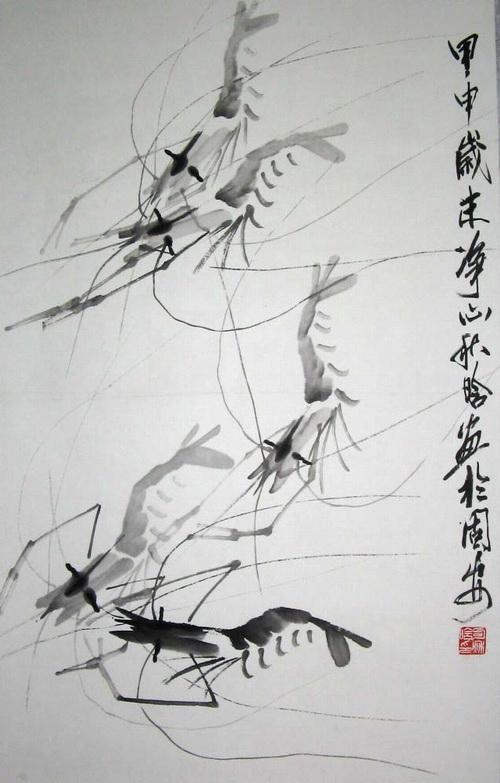 甲申歲末净心秋晗画於固安